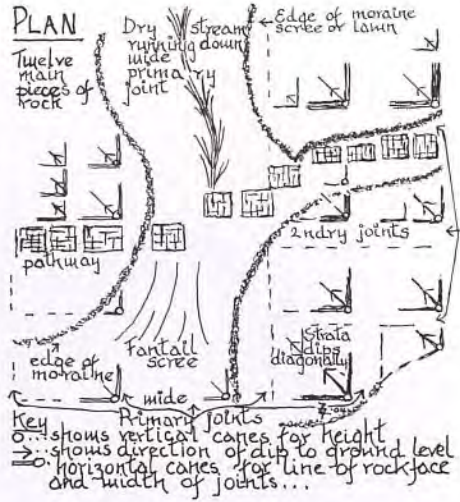 PLAN
Twelve
main
pieces of
rock
Dry stream
running down
wide
primary
joint
Edge of moraine
scree or lawn
2ndry joints
pathway
Strata
dips
diagonally
edge of
moraine
Fantail
scree
wide
Primary joints
Key
O... shows vertical canes for height
→... shows direction of dip to ground level
horizontal canes for line of rockface
and width of joints...